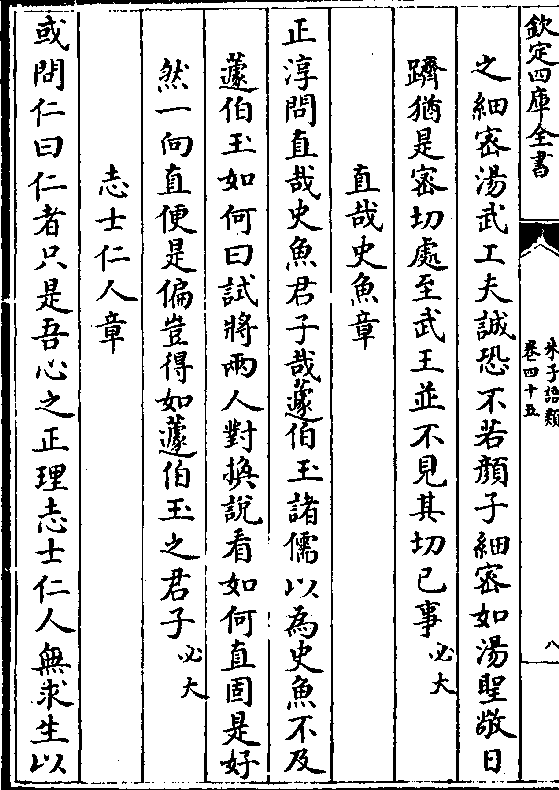 欽定四庫全書
朱子語類
卷四十五
八
之細密湯武工夫誠恐不若顔子細密如湯聖敬日
躋猶是密切處至武王並不見其切已事必大
直哉史魚章
正淳問直哉史魚君子哉蘧伯玉諸儒以為史魚不及
蘧伯玉如何曰試將兩人對換說看如何直固是好
然一向直便是偏豈得如蘧伯玉之君子必大
志士仁人章
或問仁曰仁者只是吾心之正理志士仁人無求生以